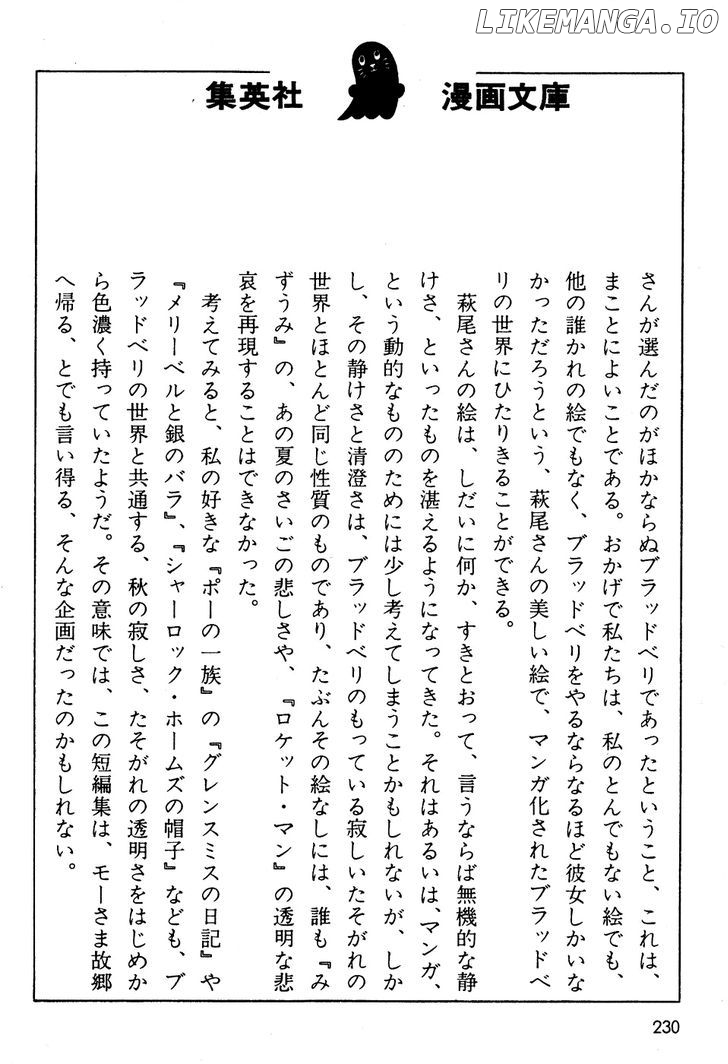 LIKEMANGA.IO
集英社 漫画文庫
さんが選んだのがほかならぬブラッドベリであったということ、これは、
まことによいことである。おかげで私たちは、私のとんでもない絵でも、
他の誰かれの絵でもなく、ブラッドベリをやるならなるほど彼女しかいな
かっただろうという、萩尾さんの美しい絵で、マンガ化されたブラッドベ
リの世界にひたりきることができる。
萩尾さんの絵は、しだいに何か、すきとおって、言うならば無機的な静
けさ、といったものを湛えるようになってきた。それはあるいは、マンガ、
という動的なもののためには少し考えてしまうことかもしれないが、しか
し、その静けさと清澄さは、ブラッドベリのもっている寂しいたそがれの
世界とほとんど同じ性質のものであり、たぶんその絵なしには、誰も『み
ずうみ』の、あの夏のさいごの悲しさや、『ロケット・マン』の透明な悲
哀を再現することはできなかった。
考えてみると、私の好きな『ポーの一族』の『グレンスミスの日記』や
『メリーベルと銀のバラ』、『シャーロック・ホームズの帽子』なども、ブ
ラッドベリの世界と共通する、秋の寂しさ、たそがれの透明さをはじめか
ら色濃く持っていたようだ。その意味では、この短編集は、モーさま故郷
へ帰る、とでも言い得る、そんな企画だったのかもしれない。
230